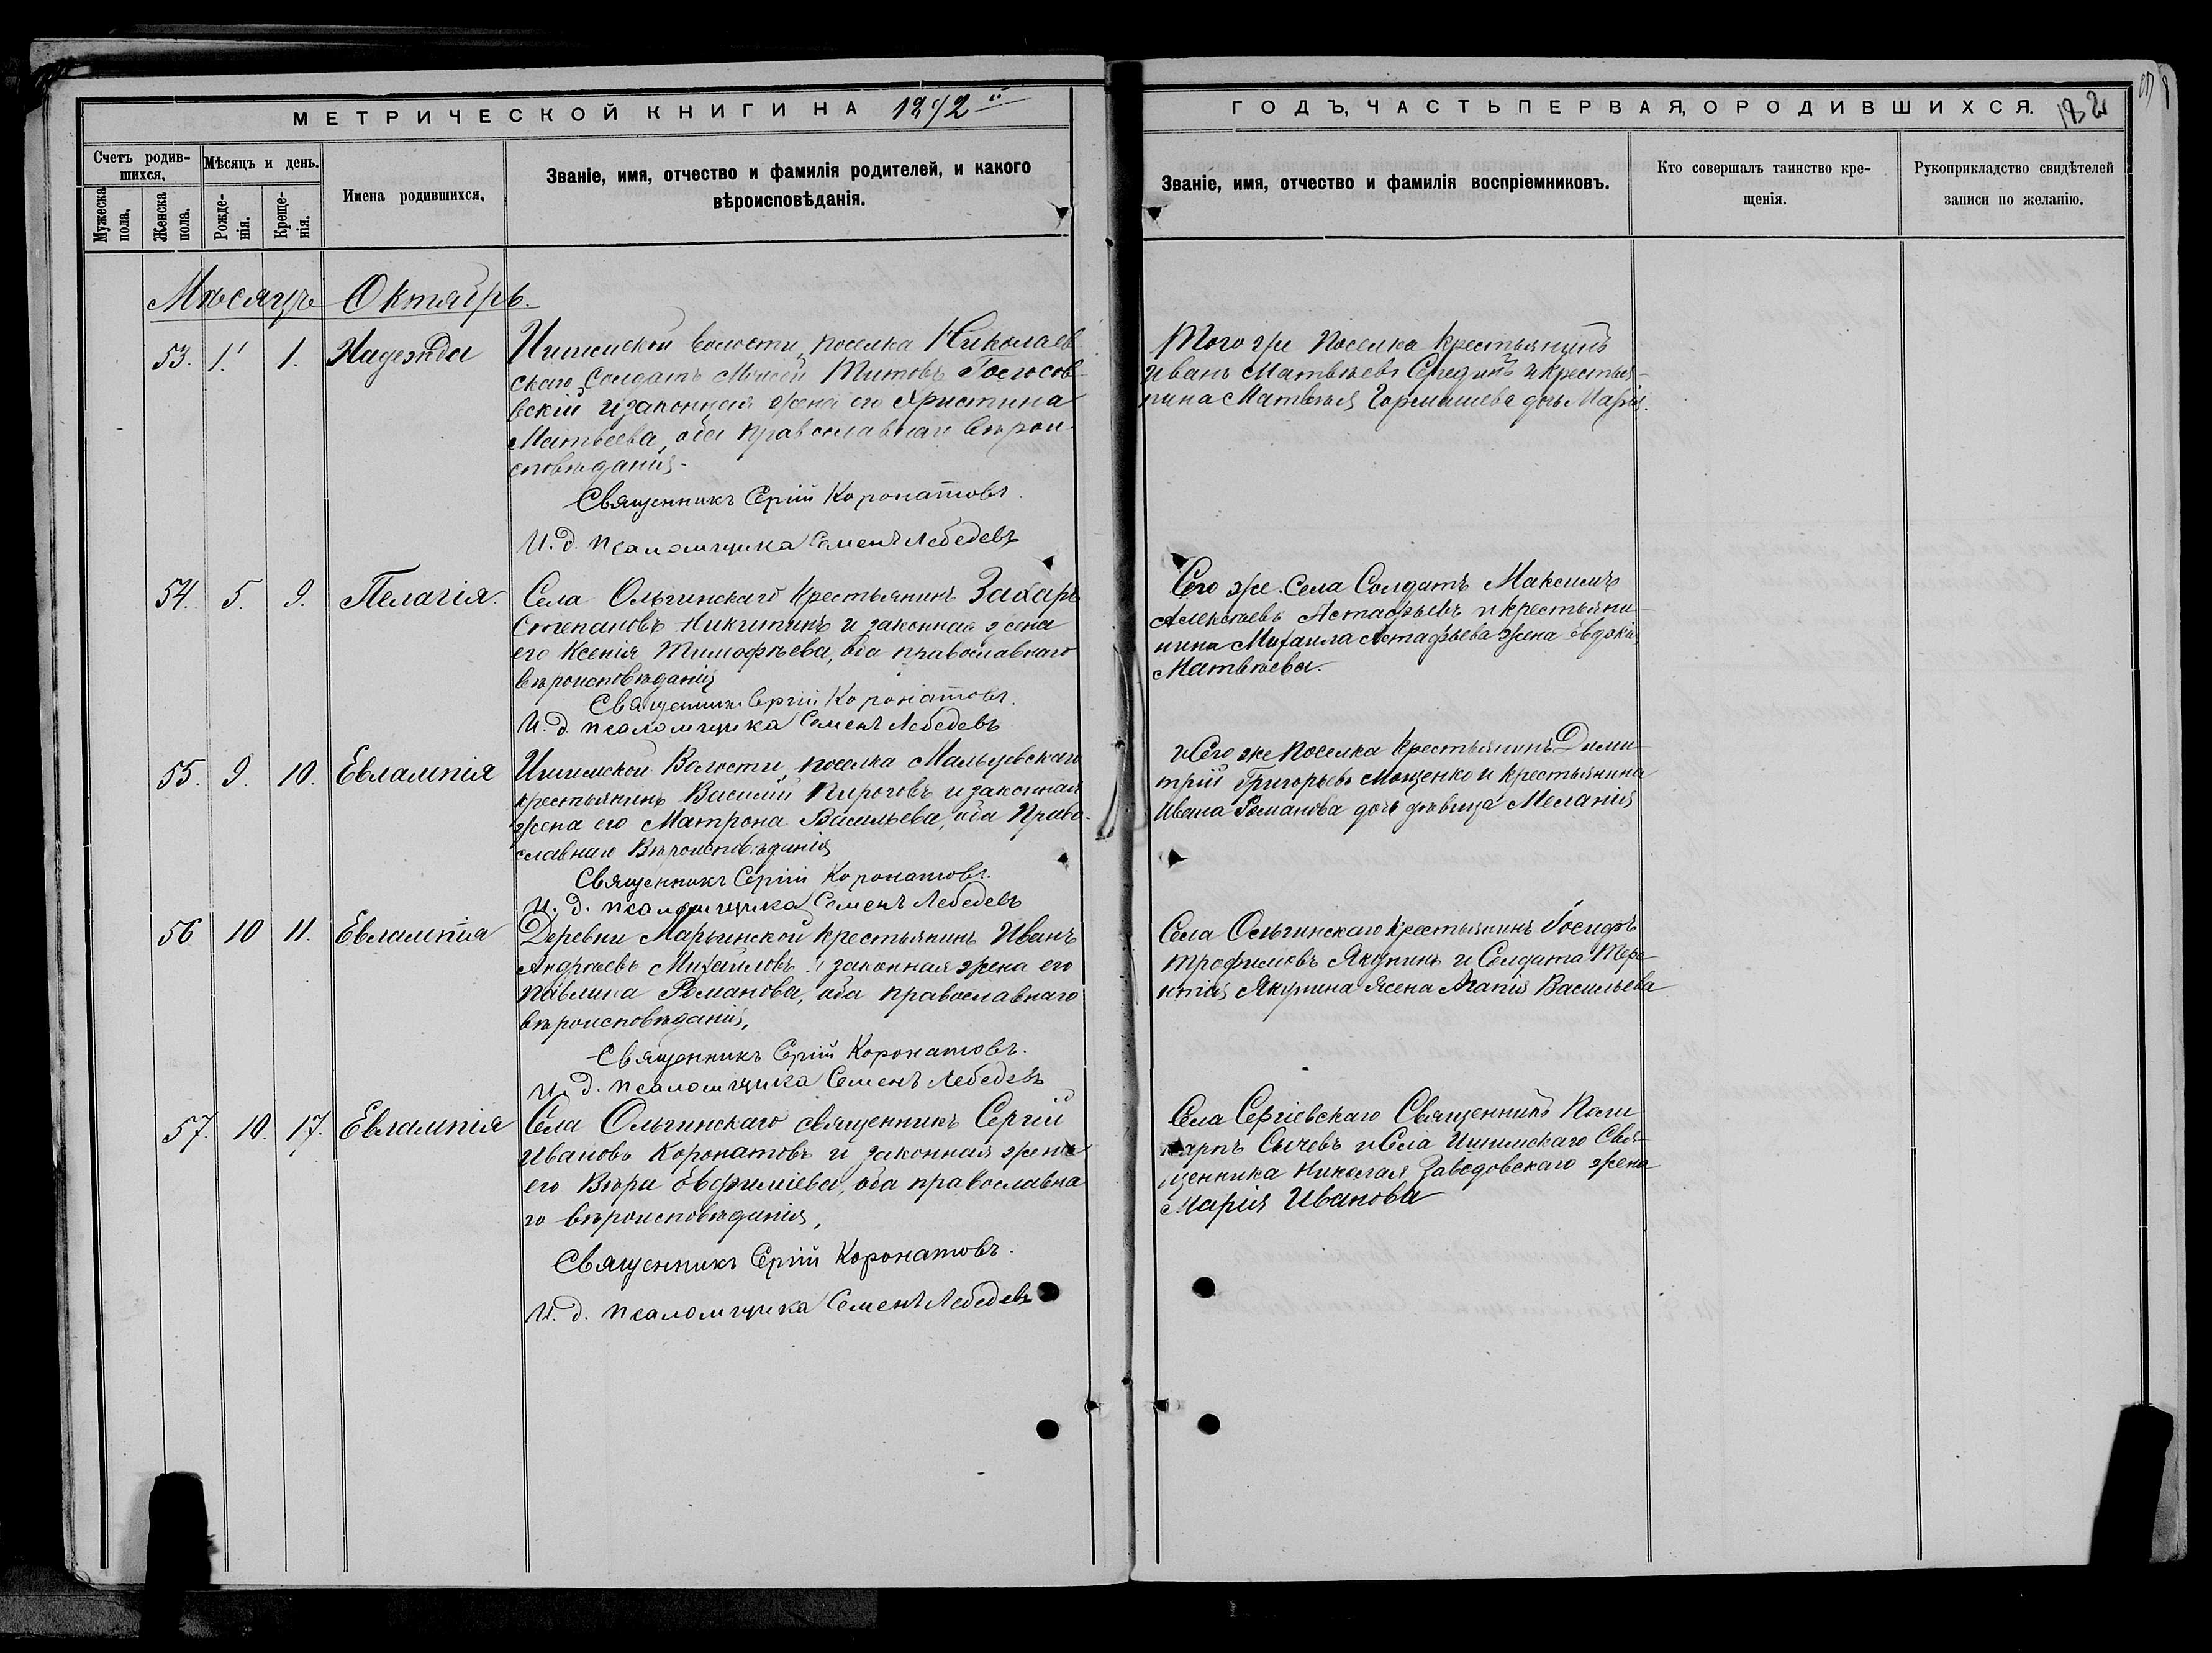 МЕТРИЧЕСКОЙ КНИГИ НА 1892 й
ГОДЪ, ЧАСТЬ ПЕРВАЯ, О РОДИВШИХСЯ.
182
Счетъ родив-
шихся,
Мужеска
пола,
Женска
пола.
Мѣсяцъ и день.
Рожде-
нія.
Креще-
нія.
Имена родившихся,
Званіе, имя, отчество и фамилія родителей, и какого
вѣроисповѣданія.
Званіе, имя, отчество и фамилія воспріемниковъ.
Кто совершалъ таинство кре-
щенія.
Рукоприкладство свидѣтелей
записи по желанію.
Мѣсяцъ Октябрь.
53. 1. 1. Надежда
Ишимской волости, поселка Николаев
скаго Солдатъ Титовъ
вскій и законная жена его Христина
Матвеева, оба православнаго вѣрои-
сповѣданія.
Священникъ Сергій Коронатовъ.
И. д. псаломщика Семенъ Лебедевъ
Того же поселка крестьянинъ
Иванъ Матвѣевъ и крестья-
нина Матвѣя дочь Марія.
54. 5. 9. Пелагія.
Села Ольгинскаго крестьянинъ Захаръ
Степановъ Никитинъ и законная жена
его Ксенія Тимофѣева, оба православнаго
вѣроисповѣданія
Священникъ Сергій Коронатовъ.
И. д. псаломщика Семенъ Лебедевъ
Сего же Села Солдатъ Максимъ
Алексѣевъ Астафьевъ и крестьяни-
нина Михаила Астафьева жена Евдокія
Матвѣева.
55. 9. 10. Евлампія
Ишимской Волости поселка Мальцевскаго
крестьянинъ Василій Пироговъ и законная
жена его Матрона Васильева, оба Право-
славнаго Вѣроисповѣданія
Священникъ Сергій Коронатовъ.
И. д. псаломщика Семенъ Лебедевъ
Сего же поселка крестьянинъ Дими-
трій Григорьевъ Мощенко и крестьянина
Ивана Романова дочь дѣвица Меланія
56 10 11. Евлампія
Деревни Марьинской крестьянинъ Иванъ
Андреевъ Михайловъ и законная жена его
Павлина Романова, оба православнаго
вѣроисповѣданія,
Священникъ Сергій Коронатовъ.
И. д. псаломщика Семенъ Лебедевъ
Села Ольгинскаго крестьянинъ Іосифъ
Трофимовъ Якунинъ и Солдата Тере-
нтія Якунина жена Агапія Васильева
57. 10. 17. Евлампія
Села Ольгинскаго священникъ Сергій
Ивановъ Коронатовъ и законная жена
его Вѣра Евфиміева, оба православна
го вѣроисповѣданія,
Священникъ Сергій Коронатовъ.
И. д. псаломщика Семенъ Лебедевъ
Села Сергіевскаго Священникъ Поли
карпъ Сычевъ и Села Ишимскаго Свя-
щенника Николая Заводовскаго жена
Марія Иванова